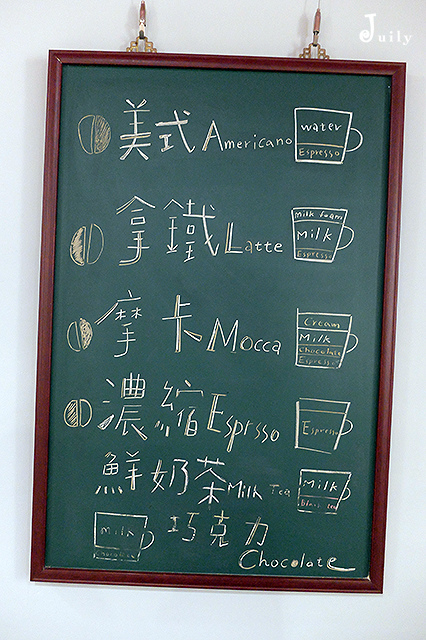 Juily
美式 Americano
water
Espresso
拿鐵 Latte
Milk foam
Milk
Espresso
摩卡 Mocca
Cream
Milk
Chocolate
Espresso
濃縮 Esprsso
Espresso
鮮奶茶 Milk Tea
Milk
black tea
Milk
Chocolate
巧克力
Chocolate